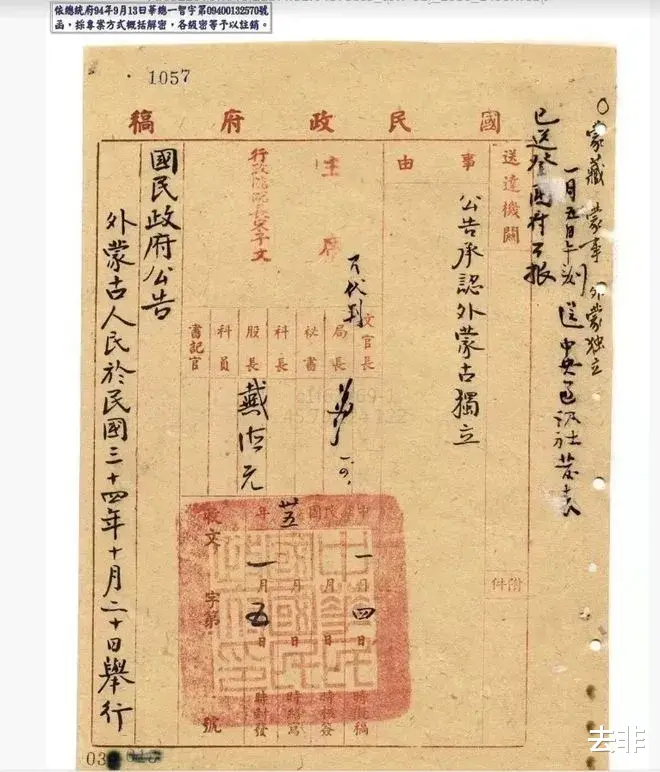 依總統府94年9月13日華總一智字第09400132570號
函，採專案方式概括解密，各級密等予以註銷。
1057
國民政府稿
蒙藏 蒙事 外蒙独立
一月五日午刻送中央通訊社發表
已送登國府公報
送達機關
附件
事由
公告承認外蒙古獨立
主席
行政院院長宋子文
文官長
局長
秘書
科長
股長
科員
書記官
戴
元
中華民國
卅五
年
一月四日
月 日
月 日
一月五日
時擬稿
時核簽
時繕寫
時封發
收文 字第 號
國民政府公告
外蒙古人民於民國三十四年十月二十日舉行
去非